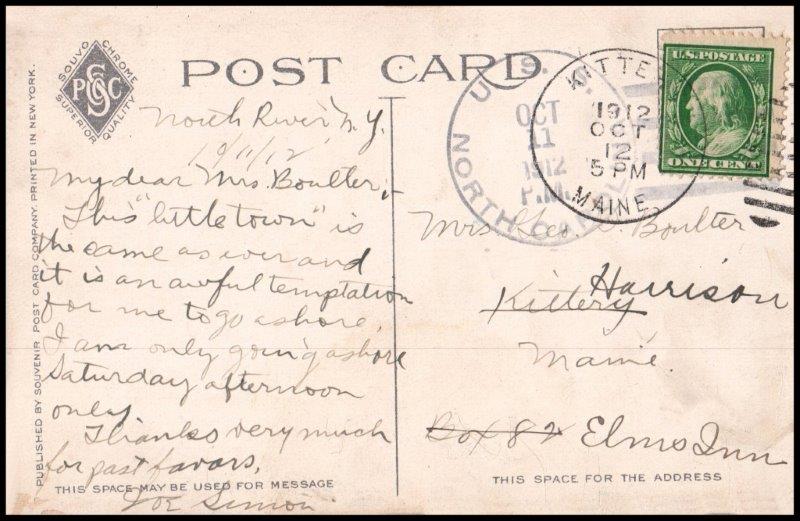 SOUVO CHROME
SUPERIOR QUALITY
PSCC
POST CARD
PUBLISHED BY SOUVENIR POST CARD COMPANY. PRINTED IN NEW YORK.
North River N.Y.
10/11/12
My dear Mrs. Boulter:-
This "little town" is
the same as ever and
it is an awful temptation
for me to go ashore.
I am only going ashore
Saturday afternoon
only.
Thanks very much
for past favors.
Joe Simon.
THIS SPACE MAY BE USED FOR MESSAGE
U. S. S.
NORTH DAKOTA
OCT
11
1912
P.M.
KITTERY
1912
OCT
12
5 PM
MAINE
U.S. POSTAGE
ONE CENT
Mrs. Geo. Boulter
Kittery Harrison
Maine.
Box 82 Elms Inn
THIS SPACE FOR THE ADDRESS